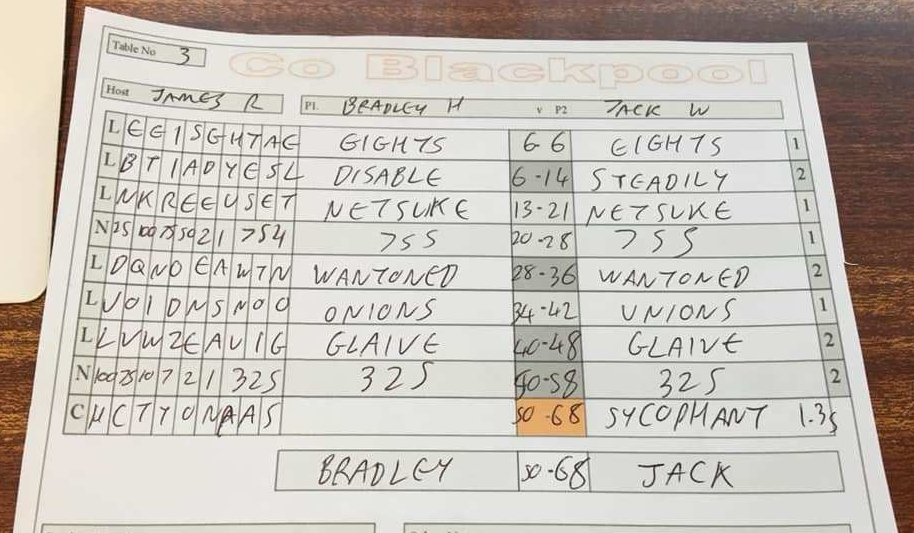 Table No 3
Co Blackpool
Host JAMES R P1. BRADLEY H v P2 JACK W
L E E I S G H T A E EIGHTS 6-6 EIGHTS 1
L B T I A D Y E S L DISABLE 6-14 STEADILY 2
L N K R E E U S E T NETSUKE 13-21 NETSUKE 1
N 25 100 75 50 2 1 754 755 20-28 755 1
L D Q N O E A W T N WANTONED 28-36 WANTONED 2
L U O I D N S N O O ONIONS 34-42 UNIONS 1
L L V W Z E A U I G GLAIVE 40-48 GLAIVE 2
N 100 75 10 7 2 1 325 325 50-58 325 2
C H C T Y O N P A S 50-68 SYCOPHANT 1.3s
BRADLEY 50-68 JACK